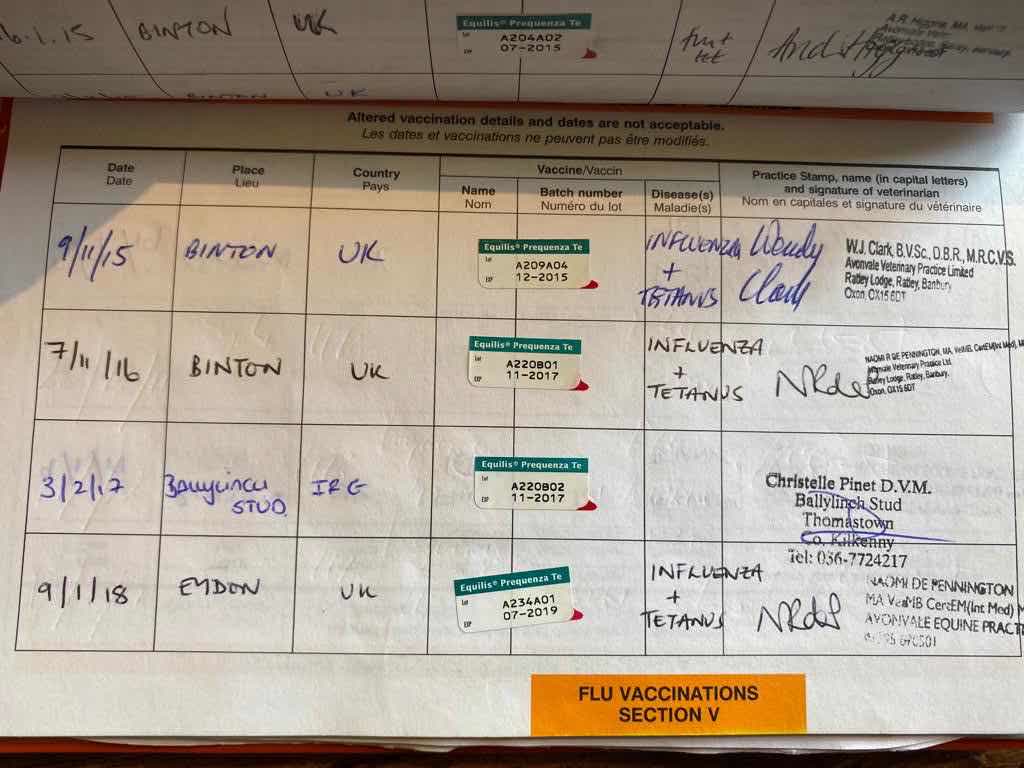 .1.15 BINTON UK
Equilis® Prequenza Te
Lot A204A02
07-2015
flu +
tet
Altered vaccination details and dates are not acceptable.
Les dates et vaccinations ne peuvent pas être modifiés.
Date
Date
Place
Lieu
Country
Pays
Vaccine/Vaccin
Name
Nom
Batch number
Numéro du lot
Disease(s)
Maladie(s)
Practice Stamp, name (in capital letters)
and signature of veterinarian
Nom en capitales et signature du vétérinaire
9/11/15 BINTON UK
Equilis® Prequenza Te
Lot A209A04
EXP 12-2015
INFLUENZA
+
TETANUS
Wendy
Clark
W.J. Clark, B.V.Sc., D.B.R., M.R.C.V.S.
Avonvale Veterinary Practice Limited
Ratley Lodge, Ratley, Banbury
Oxon, OX15 6DT
7/11/16 BINTON UK
Equilis® Prequenza Te
Lot A220B01
EXP 11-2017
INFLUENZA
+
TETANUS
NAOMI R DE PENNINGTON, MA, VetMB, CertEM(Int Med), M
Avonvale Veterinary Practice Ltd
Ratley Lodge, Ratley, Banbury.
Oxon, OX15 6DT
3/2/17
STUD
Equilis® Prequenza Te
Lot A220B02
EXP 11-2017
Christelle Pinet D.V.M.
Ballylinch Stud
Thomastown
Co. Kilkenny
Tel: 056-7724217
9/1/18 EYDON UK
Equilis® Prequenza Te
Lot A234A01
EXP 07-2019
INFLUENZA
+
TETANUS
NAOMI DE PENNINGTON
MA VetMB CertEM(Int Med) M
AVONVALE EQUINE PRACT
FLU VACCINATIONS
SECTION V